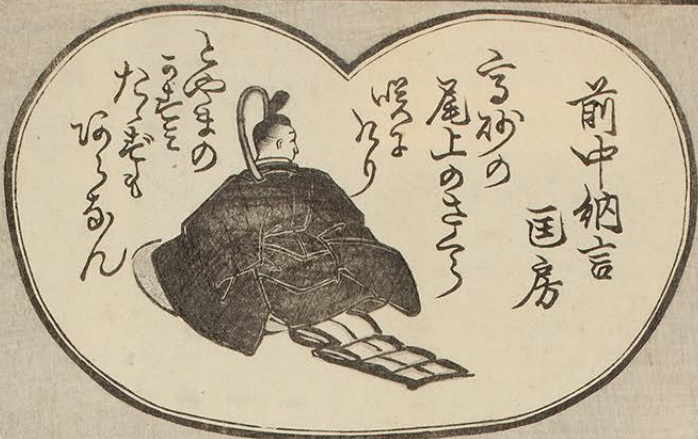 前中納言
匡房
高砂の
尾上のさくら
咲にけり
とやまの
かすみ
たゝずも
あらなん